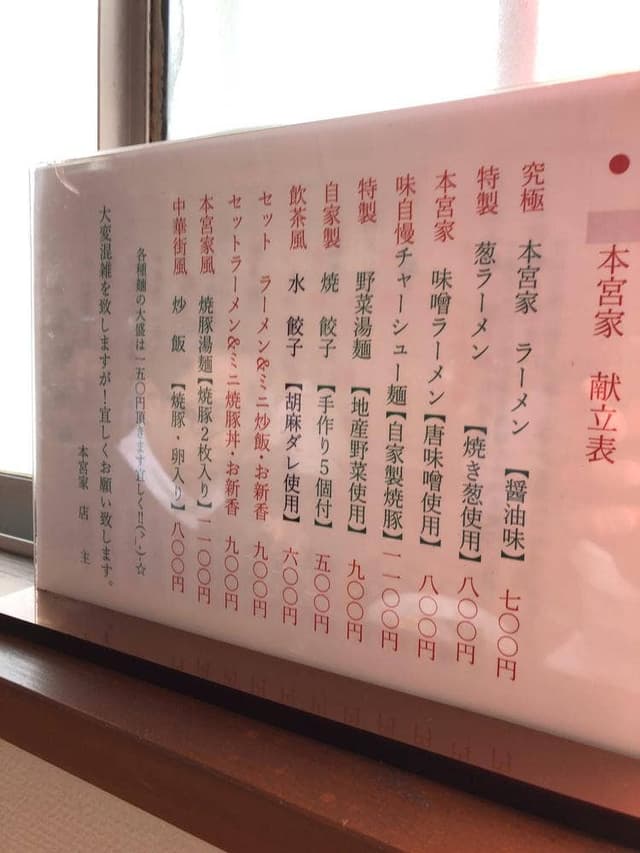 ● 本宮家 献立表
究極 本宮家 ラーメン 【醤油味】 七〇〇円
特製 葱ラーメン 【焼き葱使用】 八〇〇円
本宮家 味噌ラーメン【唐味噌使用】 八〇〇円
味自慢チャーシュー麺【自家製焼豚】 一一〇〇円
特製 野菜湯麺 【地産野菜使用】 九〇〇円
自家製 焼 餃子 【手作り5個付】 五〇〇円
飲茶風 水 餃子 【胡麻ダレ使用】 六〇〇円
セット ラーメン&ミニ炒飯・お新香 九〇〇円
セットラーメン&ミニ焼豚丼・お新香 九〇〇円
本宮家風 焼豚湯麺【焼豚2枚入り】 一一〇〇円
中華街風 炒 飯 【焼豚・卵入り】 八〇〇円
各種麺の大盛は一五〇円頂きます宜しく!!(>_<)☆
大変混雑を致しますが!宜しくお願い致します。
本宮家 店 主